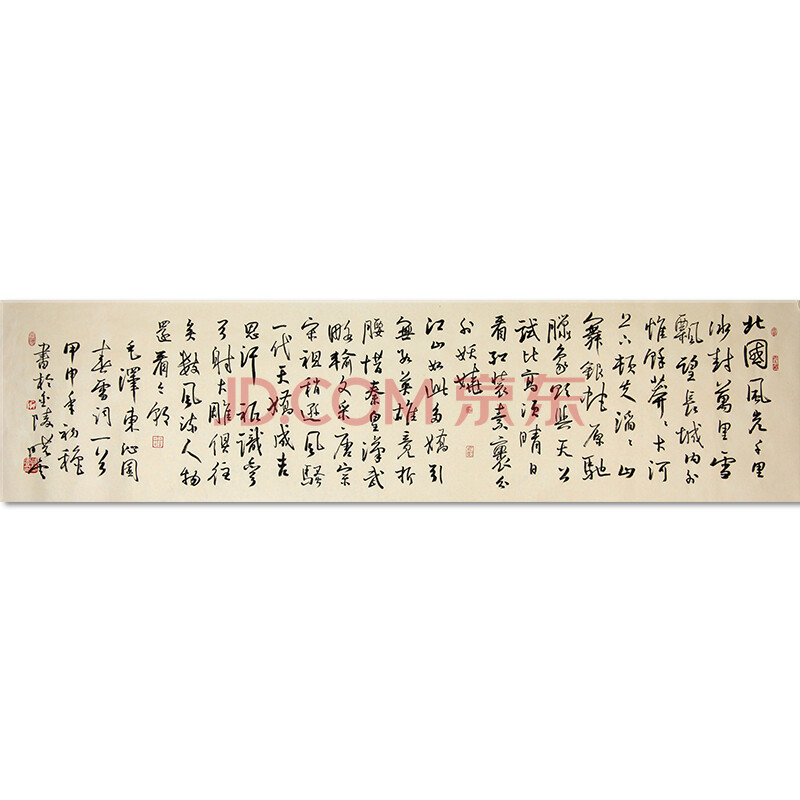 北國風光千里
冰封萬里雪
飄望長城內外
惟餘莽々大河
上下頓失滔々山
舞銀蛇原馳
臘象欲與天公
試比高須晴日
看紅裝素裹分
外妖嬈
江山如此多嬌引
無數英雄競折
腰惜秦皇漢武
略輸文采唐宗
宋祖稍遜風騷
一代天驕成吉
思汗祇識彎
弓射大雕俱往
矣數風流人物
還看今朝
毛澤東沁園
春雪詞一首
甲申年初穐
書於金陵
JD.COM 京东